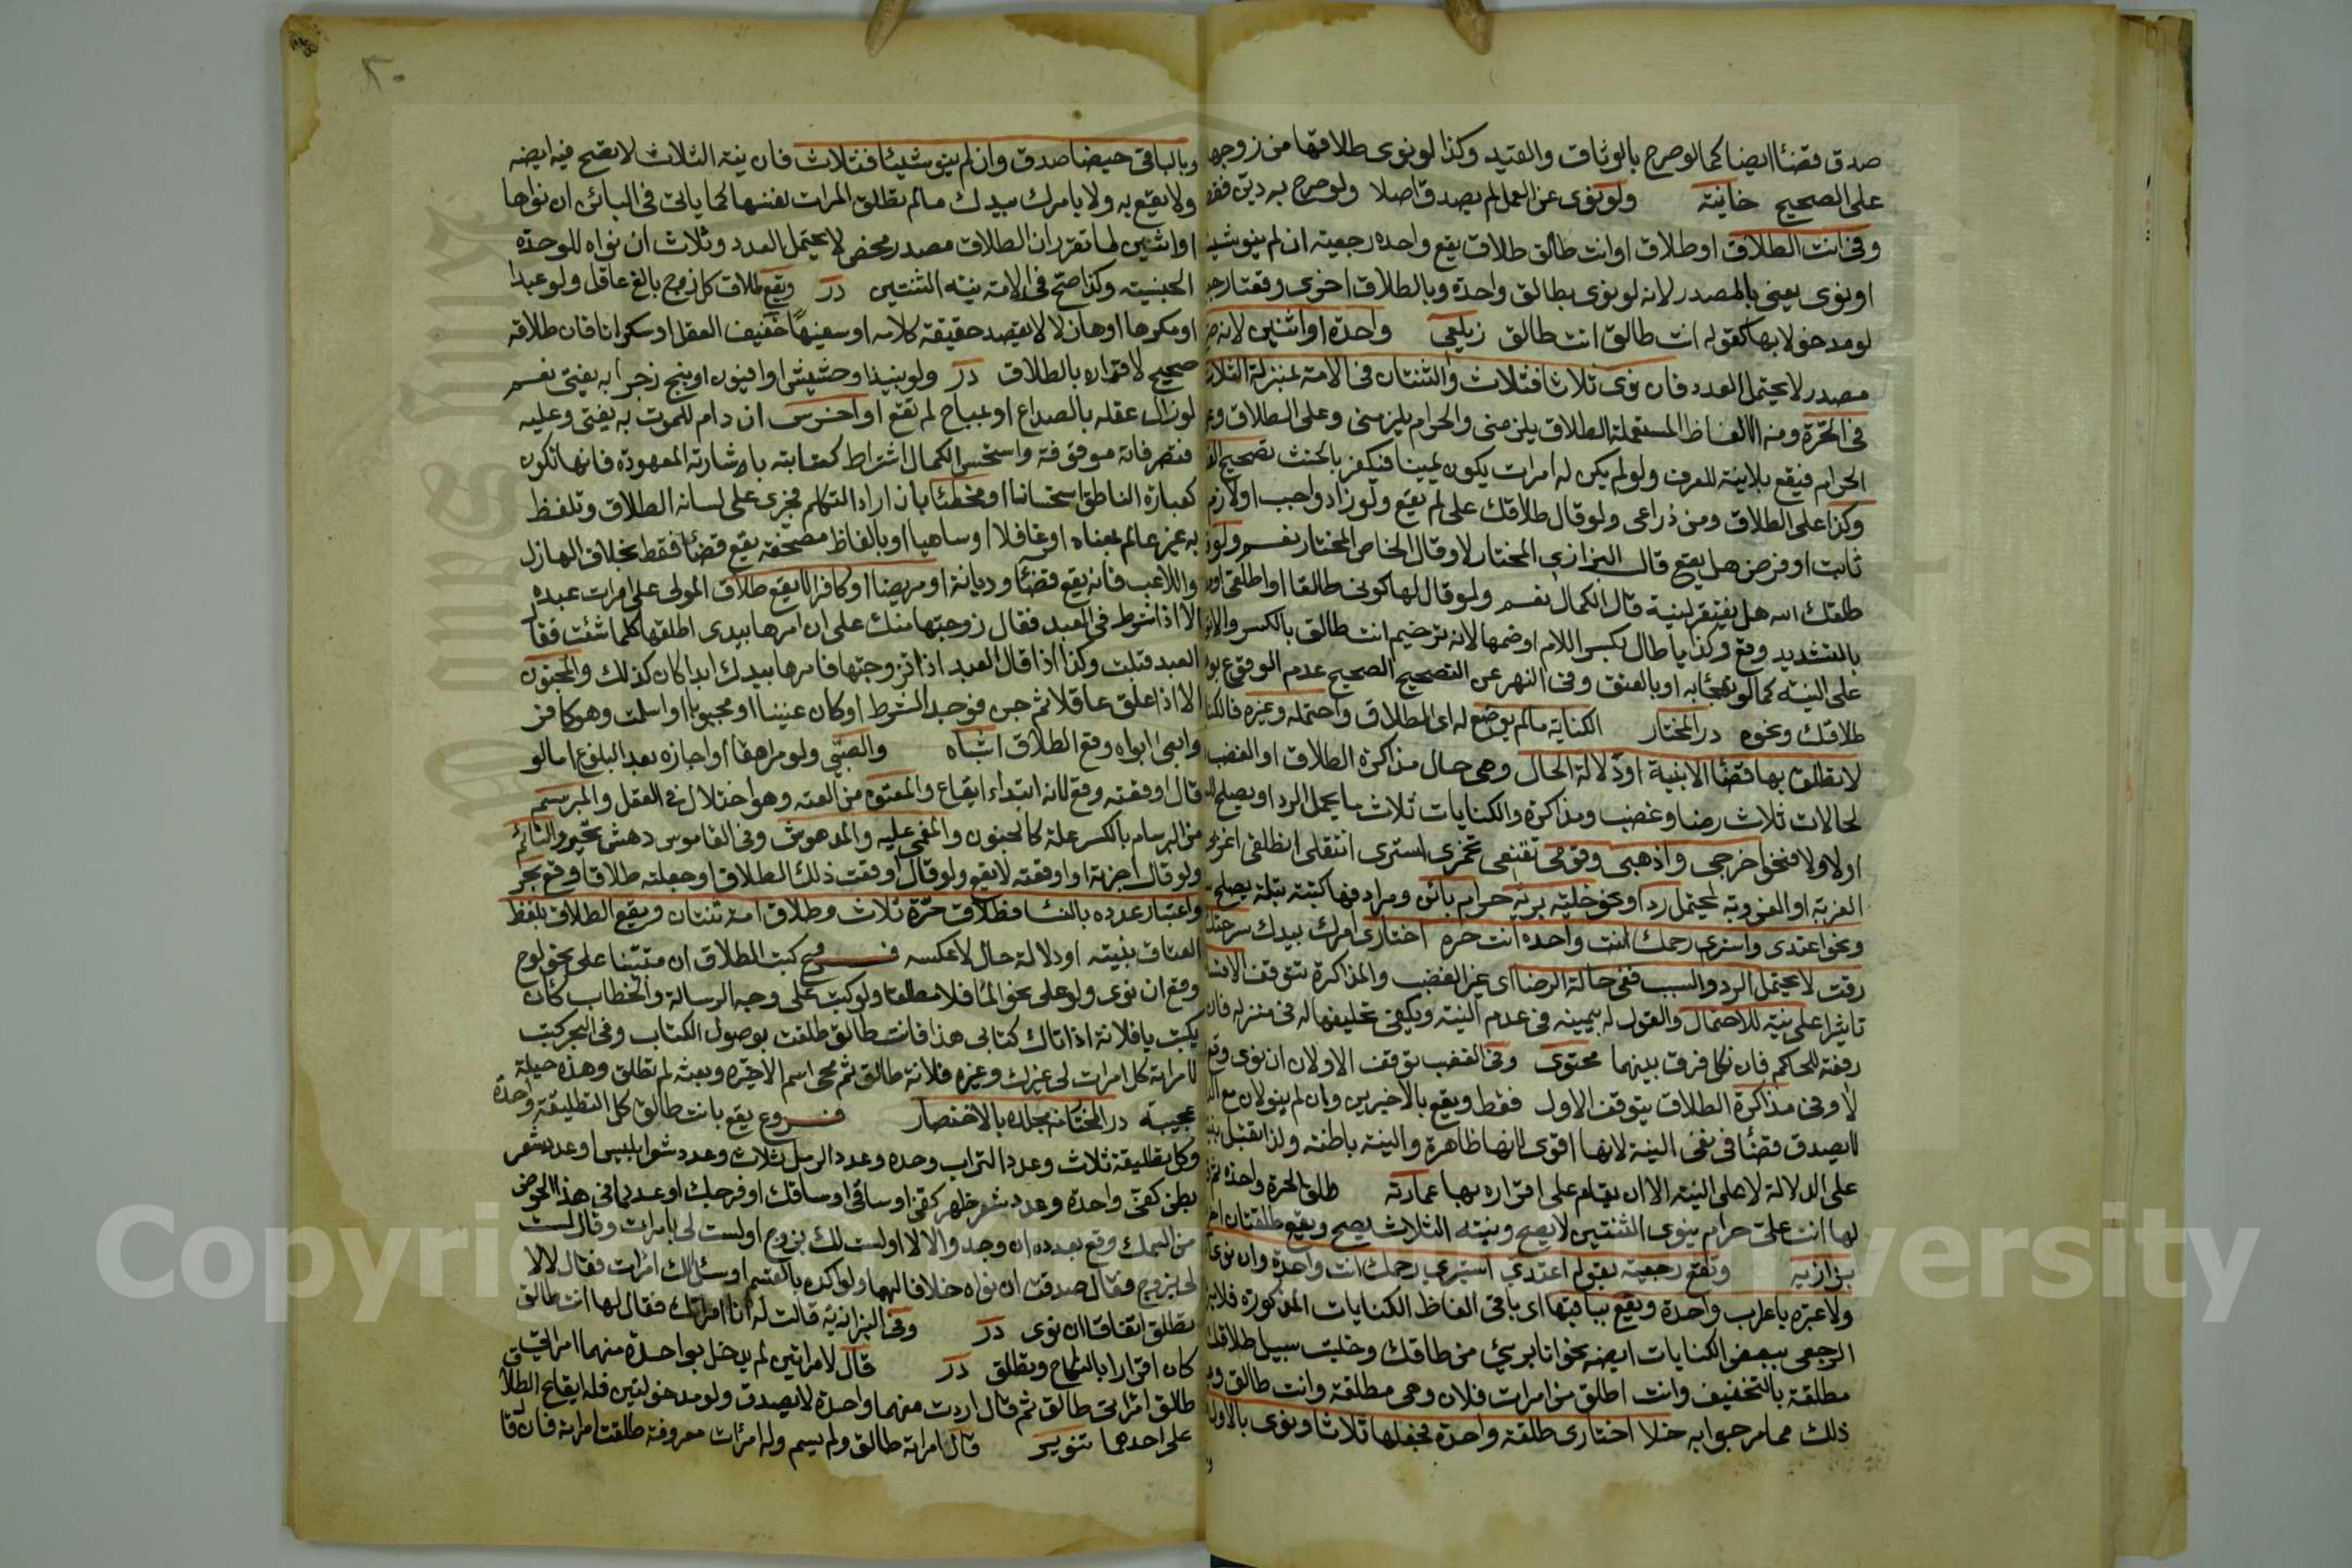 صدق قضئا ايضا كما لو صرح بالوثاق والقيد وكذا لو نوى طلاقها من زوجها
على الصحيح خانية ولو نوى عن العمل لم يصدق اصلا ولو صرح به دين فقط
وفى انت الطلاق او طلاق او انت طالق طلاق يقع واحده رجعية ان لم ينو شيئا
او نوى يعنى بالمصدر لانه لو نوى بطالق واحدة وبالطلاق اخرى وقعتا رجـ
لو مدخولا بها كقوله انت طالق انت طالق زيلعى واحدة او اثنين لانه
مصدر لا يحتمل العدد فان نوى ثلاثا فثلاث والثنتان فى الامة بمنزلة الثلاث
فى الحرة ومن الالفاظ المستعملة الطلاق يلزمنى والحرام يلزمنى وعلى الطلاق وعلى
الحرام فيقع بلا نية للعرف ولو لم يكن له امرات يكون يمينا فيكفر بالحنث تصحيح
وكذا على الطلاق ومن ذراعى ولو قال طلاقك على لم يقع ولو زاد واجب او لازم
ثابت او فرض هل يقع قال البزازى المختار لا وقال الخاص المختار نعم ولو
طلقك الله هل يفتقر لنية قال الكمال نعم ولو قال لها كونى طالقا او اطلقى
بالتشديد وقع وكذا يا طال بكسر اللام او ضمها لانه ترخيم انت طالق بالكسر والا
على النيته كما لو تهجئا به او بالعتق وفى النهر عن التصحيح الصحيح عدم الوقوع
طلاقك ونحوه در المختار الكناية ما لم يوضع له اى الطلاق واحتمله وغيره فالكنا
لا تطلق بها قضئا الا بنية او دلالة الحال وهى حال مذاكرة الطلاق او الغضب
لحالات ثلاث رضا وغضب ومذاكرة والكنايات ثلاث ما يحمل الرد او يصلح
او لا ولا فنحو اخرجى واذهبى وقومى تقنعى تخمرى استترى انتقلى انطلقى اغربى
الغربة او العزوبة يحتمل رد او نحو خليه بريه حرام بائن ومرادفها كبتة بتلة يصلح
ونحو اعتدى واستبرى رحمك انت واحده انت حره اختارى امرك بيدك سرحتك
رقت لا يحتمل الرد والسب ففى حالة الرضا اى غير الغضب والمذاكرة تتوقف
تاثيرا على نية للاحتمال والقول له بيمينه فى عدم النيته ويكفى تحليفها له فى منزله فان
رفعته للحاكم فان نكل فرق بينهما مجتبى وفى الغضب توقف الاولان ان نوى وقع
لا وفى مذاكرة الطلاق يتوقف الاول فقط ويقع بالاخيرين وان لم ينو لان مع
لا يصدق قضئا فى نفى النية لانها اقوى لانها ظاهرة والنيته باطنه ولذا تقبل
على الدلالة لا على النيته الا ان يقام على اقراره بها عمادته طلق الحرة واحدة ثم
لها انت على حرام ينوى الثنتين لا يصح ونيته الثلاث يصح ويقع طلقتان
بزازيه وتقع رجعيته بقوله اعتدى استبرى رحمك انت واحدة وان نوى
ولا عبره باعراب واحدة ويقع بباقيها اى باقى الفاظ الكنايات المذكورة
الرجعى ببعض الكنايات ايضه نحو انا برىئ من طاقك وخليت سبيل طلاقك
مطلقة بالتخفيف وانت اطلق من امرات فلان وهى مطلقة وانت طالق
ذلك مما مر جوابه خلا اختارى طلقة واحدة فجعلها ثلاثا ونوى بالاول
٢٠
وبالباقى حيضا صدق وان لم ينو شيئا فثلاث فان نية الثلاث لا تصح فيه ايضه
ولا يقع به ولا بامرك بيدك ما لم تطلق المرات نفسها كما ياتى فى البائن ان نواها
او اثنين لما تقرر ان الطلاق مصدر محض لا يحتمل العدد وثلاث ان نواه للوحدة
الجنسيته وكذا صح فى الامته نيته الثنتين در ويقع طلاق كل زوج بالغ عاقل ولو عبدا
او مكرها او هازلا لا يقصد حقيقة كلامه او سفيها خفيف العقل او سكرانا فان طلاقه
صحيح لا اقراره بالطلاق در ولو بنبيذ او حشيش او افيون او بنج زجرا به يفتى نعم
لو زال عقله بالصداع او بمباح لم تقع او اخرس ان دام للموت به يفتى وعليه
فتصرفاته موقوفة واستحسن الكمال اشتراط كتابته باشارته المعهودة فانها تكون
كعبارة الناطق استحسانا او مخطئا بان اراد التكلم فجرى على لسانه الطلاق وتلفظ
به غير عالم بمعناه او غافلا او ساهيا او بالفاظ مصحفه يقع قضئا فقط بخلاف الهازل
واللاعب فانه يقع قضئا وديانة او مريضا او كافرا لا يقع طلاق المولى على امرات عبده
الا اذا شرط فى العبد فقال زوجتها منك على ان امرها بيدى اطلقها كلما شئت فقال
العبد قبلت وكذا اذا قال العبد اذا تزوجتها فامرها بيدك ابدا كان كذلك والمجنون
الا اذا علق عاقلا ثم جن فوجد الشرط او كان عنينا او مجبوبا او اسلمت وهو كافر
وابى ابواه وقع الطلاق اشباه والصبى ولو مراهقا او اجازه بعد البلوغ اما لو
قال اوقعته وقع لانه ابتداء ايقاع والمعتوه من العته وهو اختلال فى العقل والمبرسم
من البرسام بالكسر علة كالجنون والمغمى عليه والمدهوش وفى القاموس دهش تحير والنائم
ولو قال اجزته او اوقعته لا يقع ولو قال اوقعت ذلك الطلاق او جعلته طلاقا وقع بحر
واعتبار عدده بالنسا فطلاق حرة ثلاث وطلاق امة ثنتان ويقع الطلاق بلفظ
العتاق بنيته او دلالة حال لا عكسه فروع كتب الطلاق ان مستبينا على نحو لوح
وقع ان نوى ولو على نحو الما فلا مطلقا ولو كتب على وجه الرسالة والخطاب كان
يكتب يا فلانة اذا اتاك كتابى هذا فانت طالق طلقت بوصول الكتاب وفى البحر كتب
لامراته كل امرات لى غيرك وغيره فلانة طالق ثم محى اسم الاخيره وبعثه لم تطلق وهذه حيلة
عجيبة در المختار بالاختصار فروع يقع بانت طالق كل التطليقة واحدة
وكل تطليقة ثلاث وعدد التراب وحده وعدد الرمل ثلاث وعدد شعر ابليس او عدد شعر
بطن كفى واحدة وعدد شعر ظهر كفى او ساقى او ساقك او فرجك او عدد ما فى هذا الحوض
من السمك وقع بعدده ان وجد والا لا اولست لك بزوج او لست لى بامرات وقال لست
لى بزوج فقال صدقت ان نواه خلافا لهما ولو اكده بالقسم او سئل الك امرات فقال لا لا
تطلق اتفاقا ان نوى در وفى البزازية قالت له انا امراتك فقال لها انت طالق
كان اقرارا بالنكاح وتطلق در قال لامراتين لم يدخل بواحدة منهما امراتى
طالق امراتى طالق ثم قال اردت منهما واحدة لا يصدق ولو مدخولتين فله ايقاع الطلاق
على احدهما تنوير قال امراته طالق ولم يسم وله امرات معروفة طلقت امراته فان قا
Copyright © King Saud University